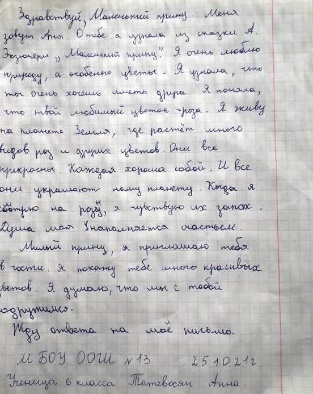 Здравствуй, Маленький принц. Меня
зовут Аня. О тебе я узнала из сказки А.
Экзюпери „Маленький принц." Я очень люблю
природу, а особенно цветы. Я узнала, что
ты очень хочешь иметь друга. Я поняла,
что твой любимый цветок - роза. Я живу
на планете Земля, где растёт много
видов роз и других цветов. Они все
прекрасны. Каждая хороша собой. И все
они украшают нашу планету. Когда я
смотрю на розы, я чувствую их запах.
Душа моя наполняется счастьем.
Милый принц, я приглашаю тебя
в гости. Я покажу тебе много красивых
цветов. Я думаю, что мы с тобой
подружимся.
Жду ответа на моё письмо.
МБОУ ООШ №13 25.10.21г.
Ученица 6 класса Татевосян Анна